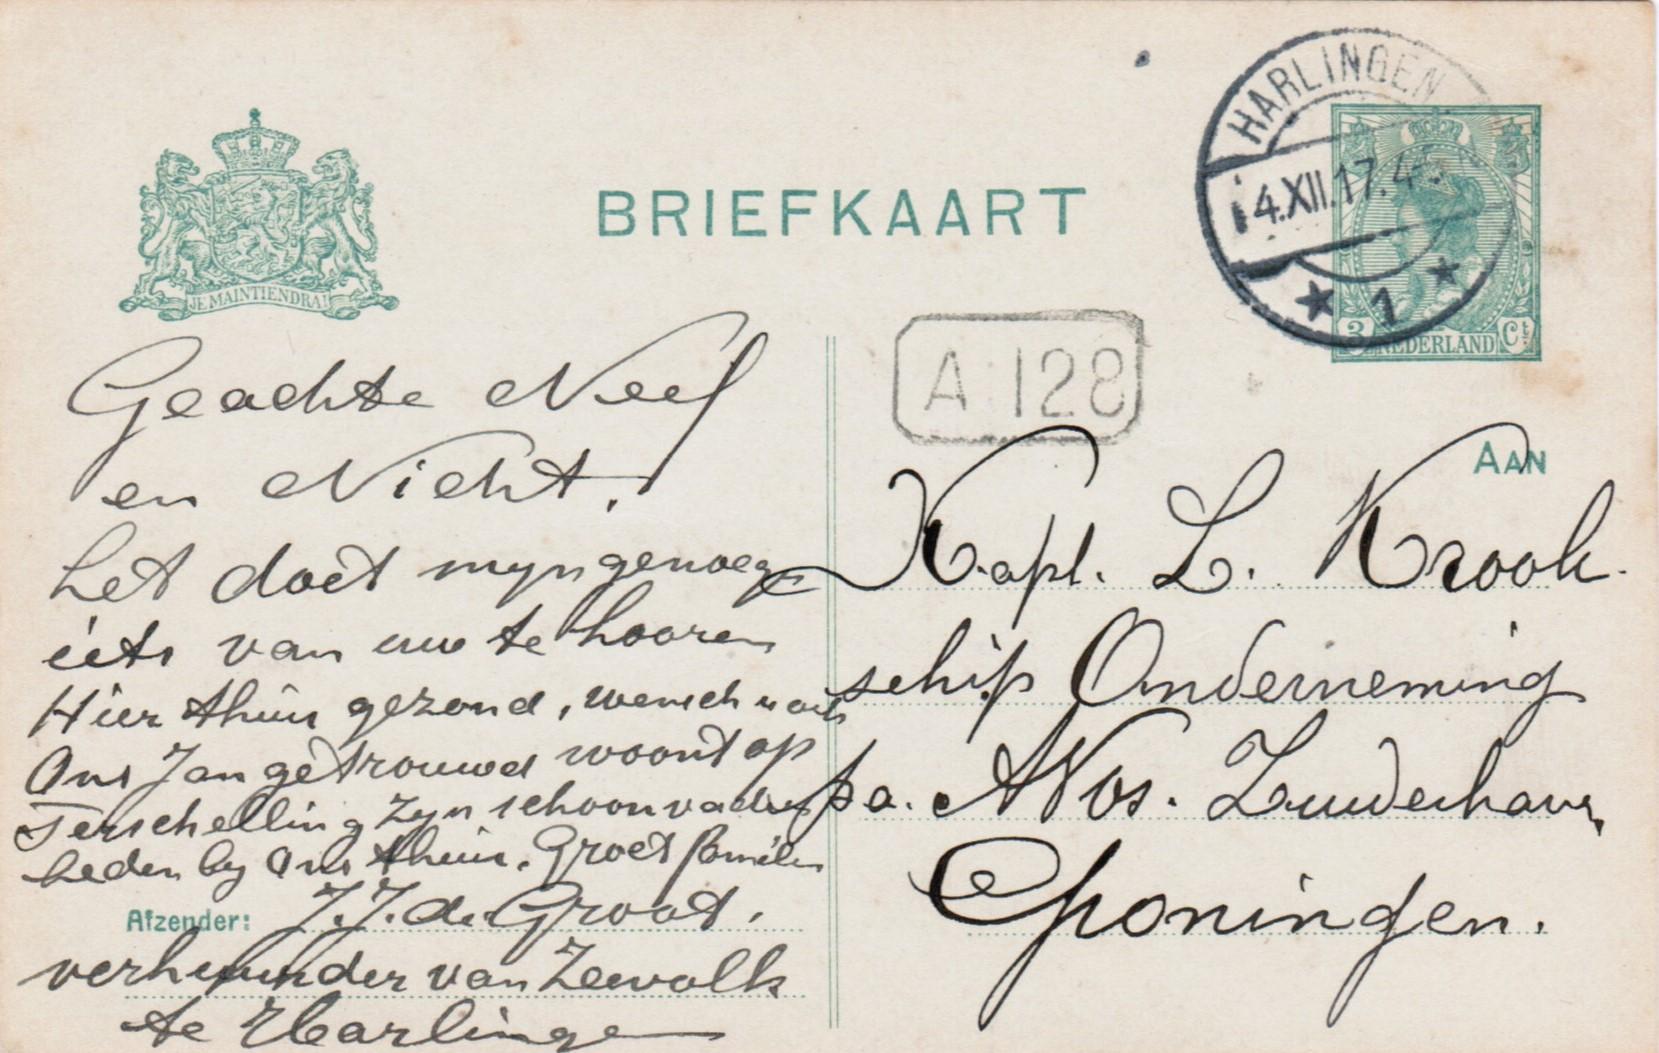 HARLINGEN
4.XII.17.4
* 1 *
JE MAINTIENDRAI
BRIEFKAART
3 Ct
NEDERLAND
A 128
AAN
Geachte Neef
en Nicht.
het doet myn genoegen
iets van uw te hooren
Hier thuis gezond, wensch u ook
Ons Jan getrouwd woont op
Terschelling zyn schoonvader
heden by ons thuis. Groet familie
Afzender: J.J. de Groot.
verhuurder van Zeevolk
te Harlingen
Kapt. L. Krook.
schip Onderneming
pa. Wos. Zuiderhaven
Groningen.